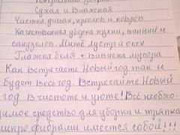 Сухая и Влажная
Чистка диван, кресел и ковров
Комплексная уборка кухни, ванной и
санузлов. Мытьё люстр и окон
Глажка белья + Выносы мусора
Как Встречаете Новый год так и
будет весь год. Встречайте Новый
год В чистоте и уюте! Всё необхо-
димое средство для уборки и тряпки
микро фибрами имеется собой!!!